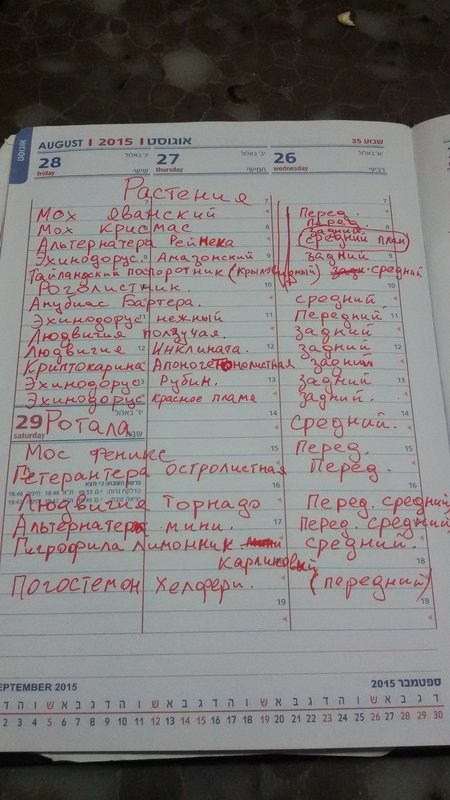 אוגוסט
AUGUST I 2015 I אוגוסט
שבוע 35
28 friday
יג' באלול
שישי
27 thursday
יב' באלול
חמישי
26 wednesday
יא' באלול
רביעי
Растения
Мох Яванский Перед.
Мох Крисмас Перед.
Альтернатера Рейнека задний (средний план)
Эхинодорус Амазонский задний
Тайландский папоротник (крыловидный) средний
Роголистник.
Анубиас Бартера. средний
Эхинодорус нежный Передний
Людвигия ползучая. задний
Людвигие Инклината. задний
Криптокарина Апоногетонолистная задний
Эхинодорус Рубин. задний
Эхинодорус красное пламе задний.
29 saturday
יד' באלול
שבת
Ротала Средний.
Мос феникс Перед.
Гетерантера остролистная Перед.
Людвигия Торнадо Перед. средний
Альтернатера мини. Перед. средний
Гигрофила Лимонник средний.
Карликовый
Погостемон Хелфери. (передний)
SEPTEMBER 2015
ספטמבר 2015
2 3 4 5 6 7 8 9 10 11 12 13 14 15 16 17 18 19 20 21 22 23 24 25 26 27 28 29 30